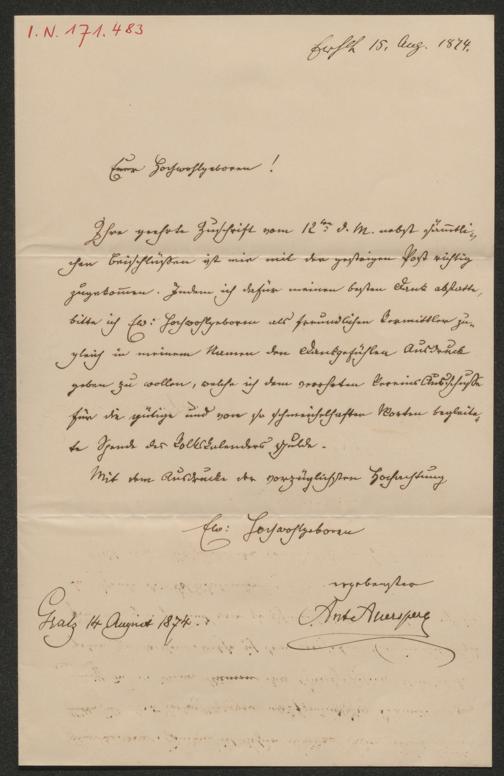 I.N. 171.483
15. Aug. 1874.
Euer Hochwohlgeboren!
Ihre geehrte Zuschrift vom 12ten d. M. nebst sämmtli-
chen Beischlüßen ist mir mit der gestrigen Post richtig
zugekommen. Indem ich dafür meinen besten Dank abstatte,
bitte ich Ew: Hochwohlgeboren als freundlichen Vermittler zu-
gleich in meinem Namen den Dankgefühlen Ausdruck
geben zu wollen, welche ich dem verehrten Vereins Ausschuße
für die gütige und von so schmeichelhaften Worten begleite-
te Spende des Volkskalenders schulde.
Mit dem Ausdrucke der vorzüglichsten Hochachtung
Ew: Hochwohlgeboren
ergebenster
Ant Auersperg
Gratz 14 August 1874.